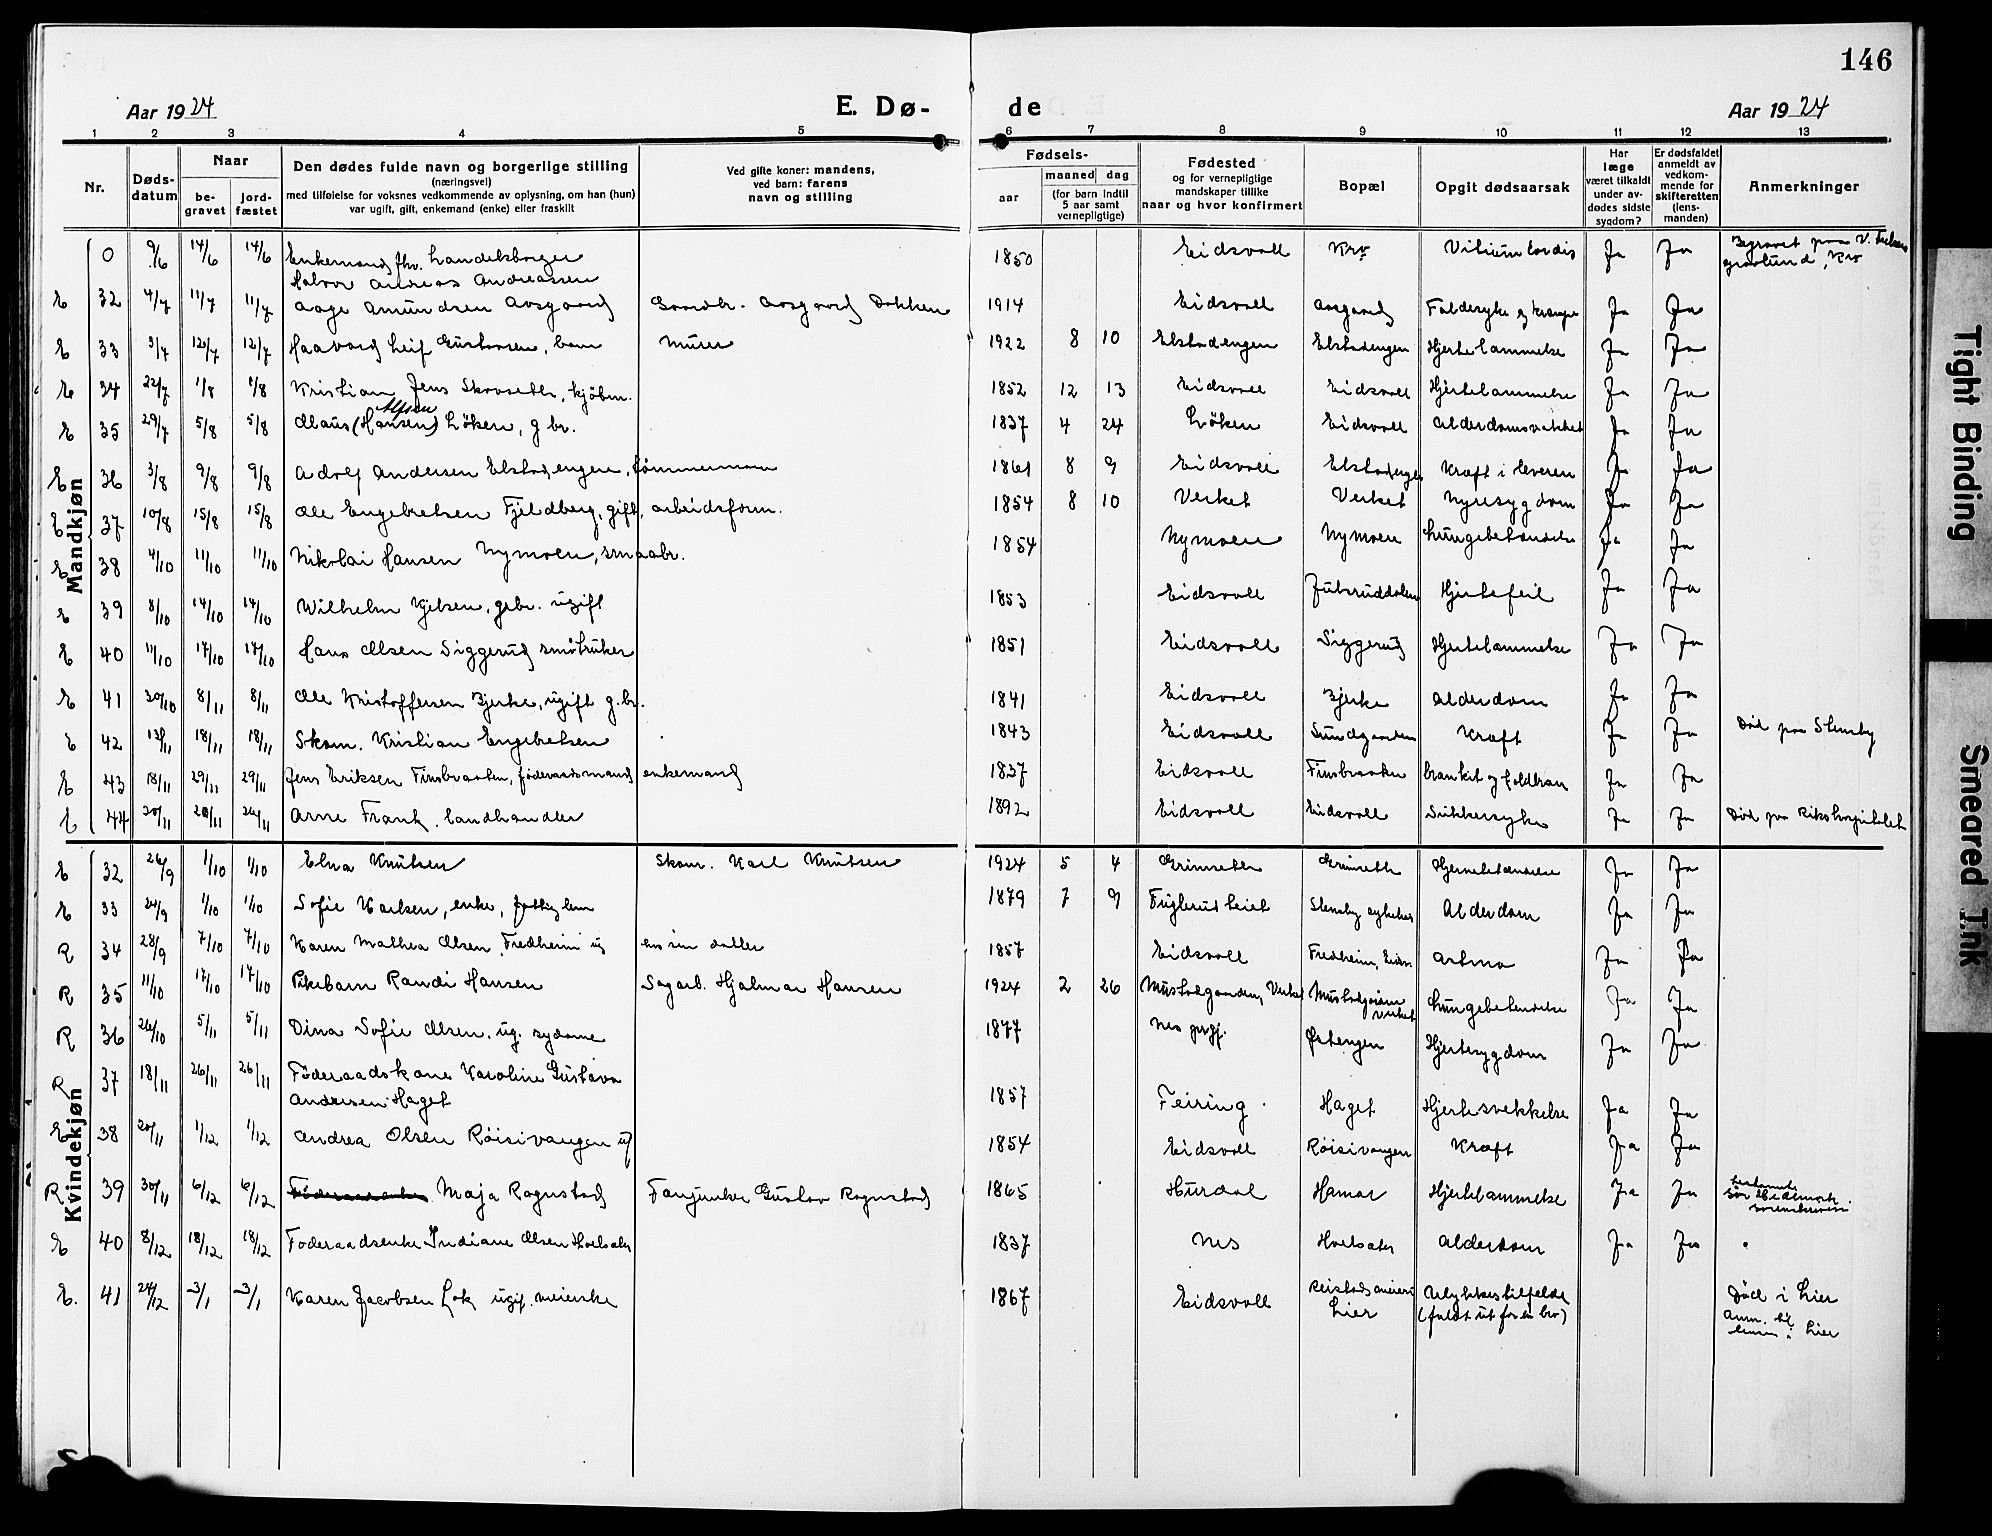 146
Aar 1924 E. Dø- de Aar 1924
1 2 3 4 5 6 7 8 9 10 11 12 13
Nr.
Døds-datum
Naar
be-gravet
jord-fæstet
Den dødes fulde navn og borgerlige stilling
(næringsvei)
med tilføielse for voksnes vedkommende av oplysning, om han (hun)
var ugift, gift, enkemand (enke) eller fraskilt
Ved gifte koner: mandens,
ved barn: farens
navn og stilling
Fødsels-
aar
maaned dag
(for barn indtil 5 aar samt vernepligtige)
Fødested
og for vernepligtige
mandskaper tillike
naar og hvor konfirmert
Bopæl
Opgit dødsaarsak
Har læge været tilkaldt under av-dødes sidste sygdom?
Er dødsfaldet anmeldt av vedkom-mende for skifteretten (lens-manden)
Anmerkninger
Mandkjøn
0 9/6 14/6 14/6 Enkemand fhv. Landelsborger Halvor Andreas Andreassen 1850 Eidsvoll Kro Vitium cordis Ja Ja Begravet paa V. gravlund, Kro
E 32 4/7 11/7 11/7 Aage Amundsen Aasgaard Gaardbr. Aasgaard Dokken 1914 Eidsvoll Aasgaard Faldesyke og krampe Ja Ja
E 33 9/7 12/7 12/7 Haavard Leif Gustavsen, barn Murer 1922 8 10 Elstadengen Elstadengen Hjertelammelse Ja Ja
E 34 22/7 1/8 1/8 Kristian Jens Skovseth, kjøbm. 1852 12 13 Eidsvoll Eidsvoll Hjertelammelse Ja Ja
E 35 29/7 5/8 5/8 Olaus (Hansen) Løken, gbr. 1837 4 24 Løken Eidsvoll Alderdomsvakhet Ja Ja
E 36 3/8 9/8 9/8 Adolf Andersen Elstadengen, tømmermann 1861 8 9 Eidsvoll Elstadengen Kræft i leveren Ja Ja
E 37 10/8 15/8 15/8 Ole Engebretsen Fjeldberg, gift, arbeidsform. 1854 8 10 Verket Verket Nyresygdom Ja Ja
E 38 4/10 11/10 11/10 Nikolai Hansen Nymoen, smaabr. 1854 Nymoen Nymoen Lungebetændelse Ja Ja
E 39 8/10 14/10 14/10 Wilhelm Kjelsen, gbr. ugift 1853 Eidsvoll Julsruddalen Hjertefeil Ja Ja
E 40 11/10 17/10 17/10 Hans Olsen Siggerud småbruker 1851 Eidsvoll Siggerud Hjertelammelse Ja Ja
E 41 30/10 8/11 8/11 Ole Kristoffersen Bjerke, ugift g.br. 1841 Eidsvoll Bjerke Alderdom Ja Ja
E 42 13/11 18/11 18/11 Skom. Kristian Engebretsen 1843 Eidsvoll Sundgaarden Kræft Ja Ja Død paa Stensby
E 43 18/11 29/11 29/11 Jens Eriksen Finsbraaten, føderaadsmand enkemand 1837 Eidsvoll Finsbraaten Ja Ja
E 44 20/11 26/11 26/11 Arne Frank, landhandler 1892 Eidsvoll Eidsvoll Sukkersyke Ja Ja Død paa Rikshospitalet
Kvindekjøn
E 32 26/9 1/10 1/10 Elna Knutsen Skom. Karl Knutsen 1924 5 4 Grinseth Grinseth Hjernebetændelse Ja Ja
E 33 24/9 1/10 1/10 Sofie Karlsen, enke, fattiglem 1879 7 9 Fuglerudleiet Stensby sykehus Alderdom Ja Ja
R 34 28/9 7/10 7/10 Karen Mathea Olsen, Fredheim ug hos sin datter 1857 Eidsvoll Fredheim, Eidsv. Astma Ja Ja
R 35 11/10 17/10 17/10 Pikebarn Randi Hansen Sagarb. Hjalmar Hansen 1924 2 26 Mustadgaarden, Verket Mustadgaarden Verket Lungebetændelse Ja Ja
R 36 26/10 5/11 5/11 Dina Sofie Olsen. ug. sydame 1877 Nes prgj. Østengen Hjertesygdom Ja Ja
R 37 18/11 26/11 26/11 Føderaadskone Karoline Gustava Andersen Haget 1857 Feiring Haget Hjertesvekkelse Ja Ja
E 38 20/11 1/12 1/12 Andrea Olsen Røisivangen ug 1854 Eidsvoll Røisivangen Kræft Ja Ja
R 39 30/11 6/12 6/12 Maja Rognstad Fanjunker Gustav Rognstad 1865 Hurdal Hamar Hjertelammelse Ja Ja Sør Hedemark sorenskriveri
E 40 8/12 18/12 18/12 Føderaadsenke Indiane Olsen Hoelsæter 1837 Nes Hoelsæter Alderdom Ja Ja
E. 41 24/12 3/1 3/1 Karen Jacobsen Lok ugif. meierske 1867 Eidsvoll Reistad meieri Lier Ulykkestilfelde (faldt ut for en bro) Død i Lier Anm. til lensm. i Lier
Tight Binding
Smeared Ink